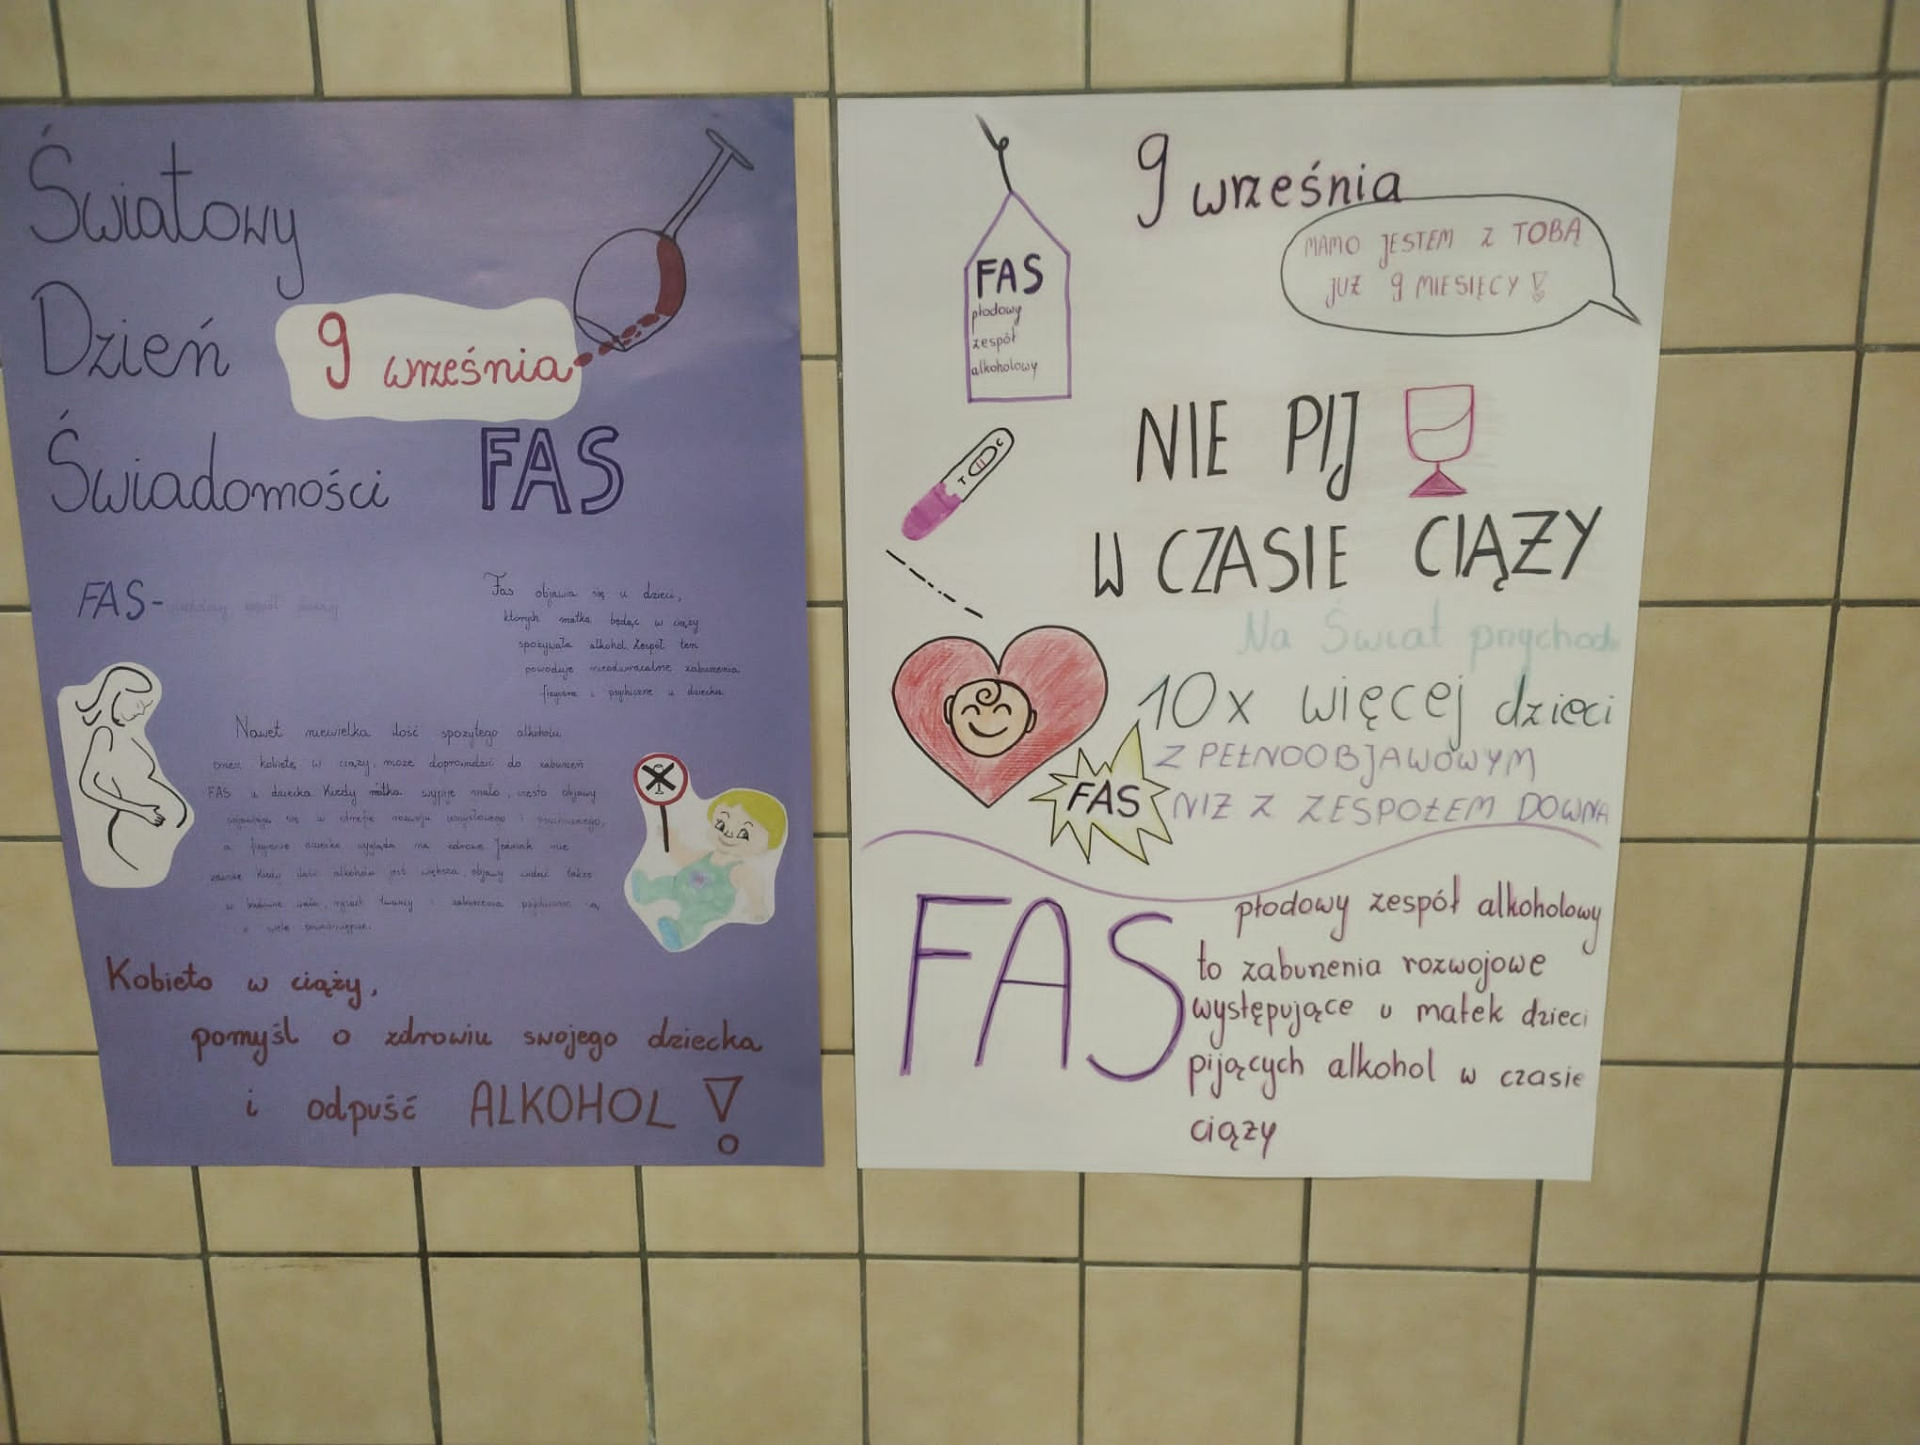 Światowy
Dzień
9 września
Świadomości FAS
FAS-
Fas objawia się u dzieci,
których matka będąc w ciąży
spożywała alkohol. Zespół ten
powoduje nieodwracalne zaburzenia
fizyczne i psychiczne u dziecka.
Nawet niewielka ilość spożytego alkoholu
przez kobietę w ciąży, może doprowadzić do zaburzeń
FAS u dziecka. Kiedy matka wypije mało, często objawy
a fizycznie dziecko wygląda na zdrowe. Jednak nie
zawsze. Kiedy ilość alkoholu jest większa, objawy widać także
w budowie ciała, rysach twarzy i zaburzenia psychiczne są
o wiele
Kobieto w ciąży,
pomyśl o zdrowiu swojego dziecka
i odpuść ALKOHOL!
9 września
MAMO JESTEM Z TOBĄ
JUŻ 9 MIESIĘCY!
FAS
płodowy
zespół
alkoholowy
T C
NIE PIJ
W CZASIE CIĄŻY
Na Świat przychodzi
10x więcej dzieci
Z PEŁNOOBJAWOWYM
FAS
NIŻ Z ZESPOŁEM DOWNA
FAS
płodowy zespół alkoholowy
to zaburzenia rozwojowe
występujące u matek dzieci
pijących alkohol w czasie
ciąży